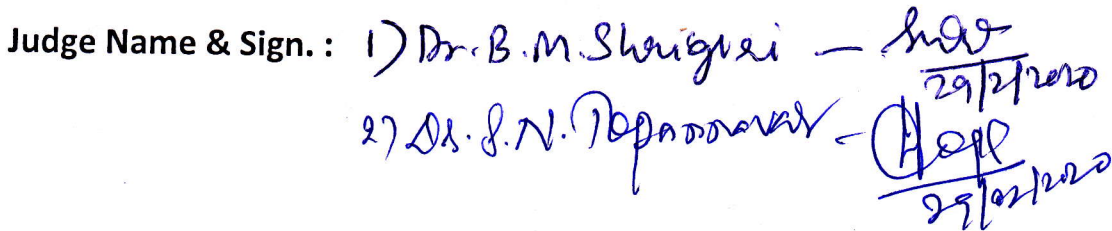 Judge Name & Sign. : 1) Dr. B. M. Shrigiri –
29/2/2020
2) Dr. S. N. –
29/02/2020